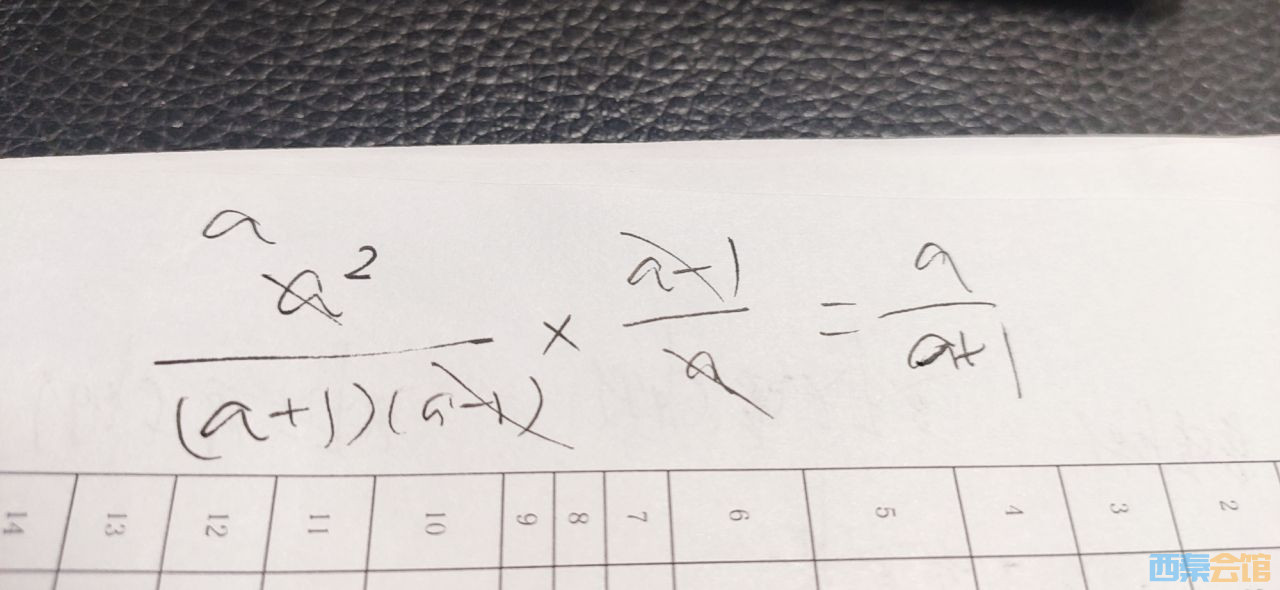 a
a²
(a+1)(a-1)
×
a-1
a
=
a
a+1
14 13 12 11 10 9 8 7 6 5 4 3 2
西秦会馆